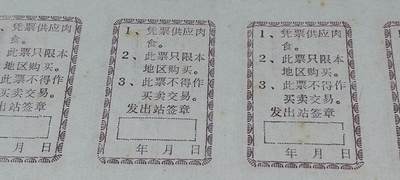 肉
食。
2、此票只限本
地区购买。
3、此票不得作
买卖交易。
发出站签章
年 月 日
1、凭票供应肉
食。
2、此票只限本
地区购买。
3、此票不得作
买卖交易。
发出站签章
年 月 日
1、凭票供应肉
食。
2、此票只限本
地区购买。
3、此票不得作
买卖交易。
发出站签章
年 月 日